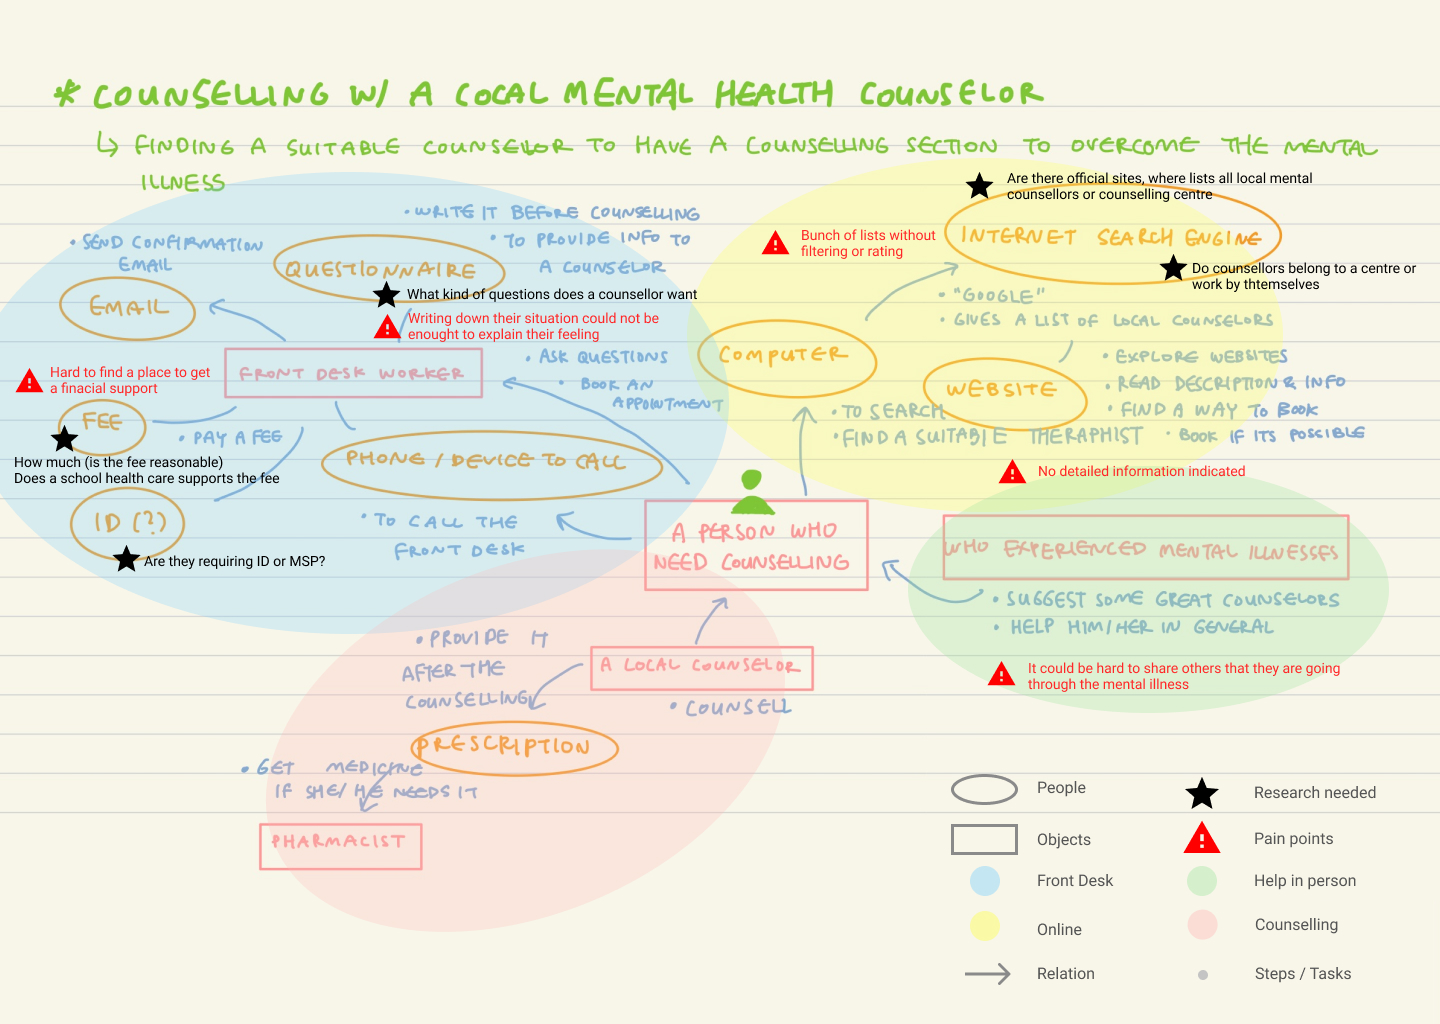 * COUNSELLING W/ A LOCAL MENTAL HEALTH COUNSELOR
↳ FINDING A SUITABLE COUNSELOR TO HAVE A COUNSELLING SECTION TO OVERCOME THE MENTAL
ILLNESS
• SEND CONFIRMATION
EMAIL
EMAIL
• WRITE IT BEFORE COUNSELLING
• TO PROVIDE INFO TO
A COUNSELOR
QUESTIONNAIRE
What kind of questions does a counsellor want
Writing down their situation could not be
enought to explain their feeling
FRONT DESK WORKER
• ASK QUESTIONS
• BOOK AN
APPOINTMENT
Hard to find a place to get
a finacial support
FEE
• PAY A FEE
How much (is the fee reasonable)
Does a school health care supports the fee
PHONE / DEVICE TO CALL
ID (?)
Are they requiring ID or MSP?
• TO CALL THE
FRONT DESK
Are there official sites, where lists all local mental
counsellors or counselling centre
Bunch of lists without
filtering or rating
INTERNET SEARCH ENGINE
Do counsellors belong to a centre or
work by thtemselves
• "GOOGLE"
• GIVES A LIST OF LOCAL COUNSELORS
COMPUTER
WEBSITE
• EXPLORE WEBSITES
• READ DESCRIPTION & INFO
• FIND A WAY TO BOOK
• BOOK IF ITS POSSIBLE
• TO SEARCH
• FIND A SUITABLE THERAPHIST
No detailed information indicated
A PERSON WHO
NEED COUNSELLING
WHO EXPERIENCED MENTAL ILLNESSES
• SUGGEST SOME GREAT COUNSELORS
• HELP HIM/HER IN GENERAL
It could be hard to share others that they are going
through the mental illness
• PROVIDE IT
AFTER THE
COUNSELLING
A LOCAL COUNSELOR
• COUNSELL
PRESCRIPTION
• GET MEDICINE
IF SHE/HE NEEDS IT
PHARMACIST
People
Research needed
Objects
Pain points
Front Desk
Help in person
Online
Counselling
Relation
Steps / Tasks